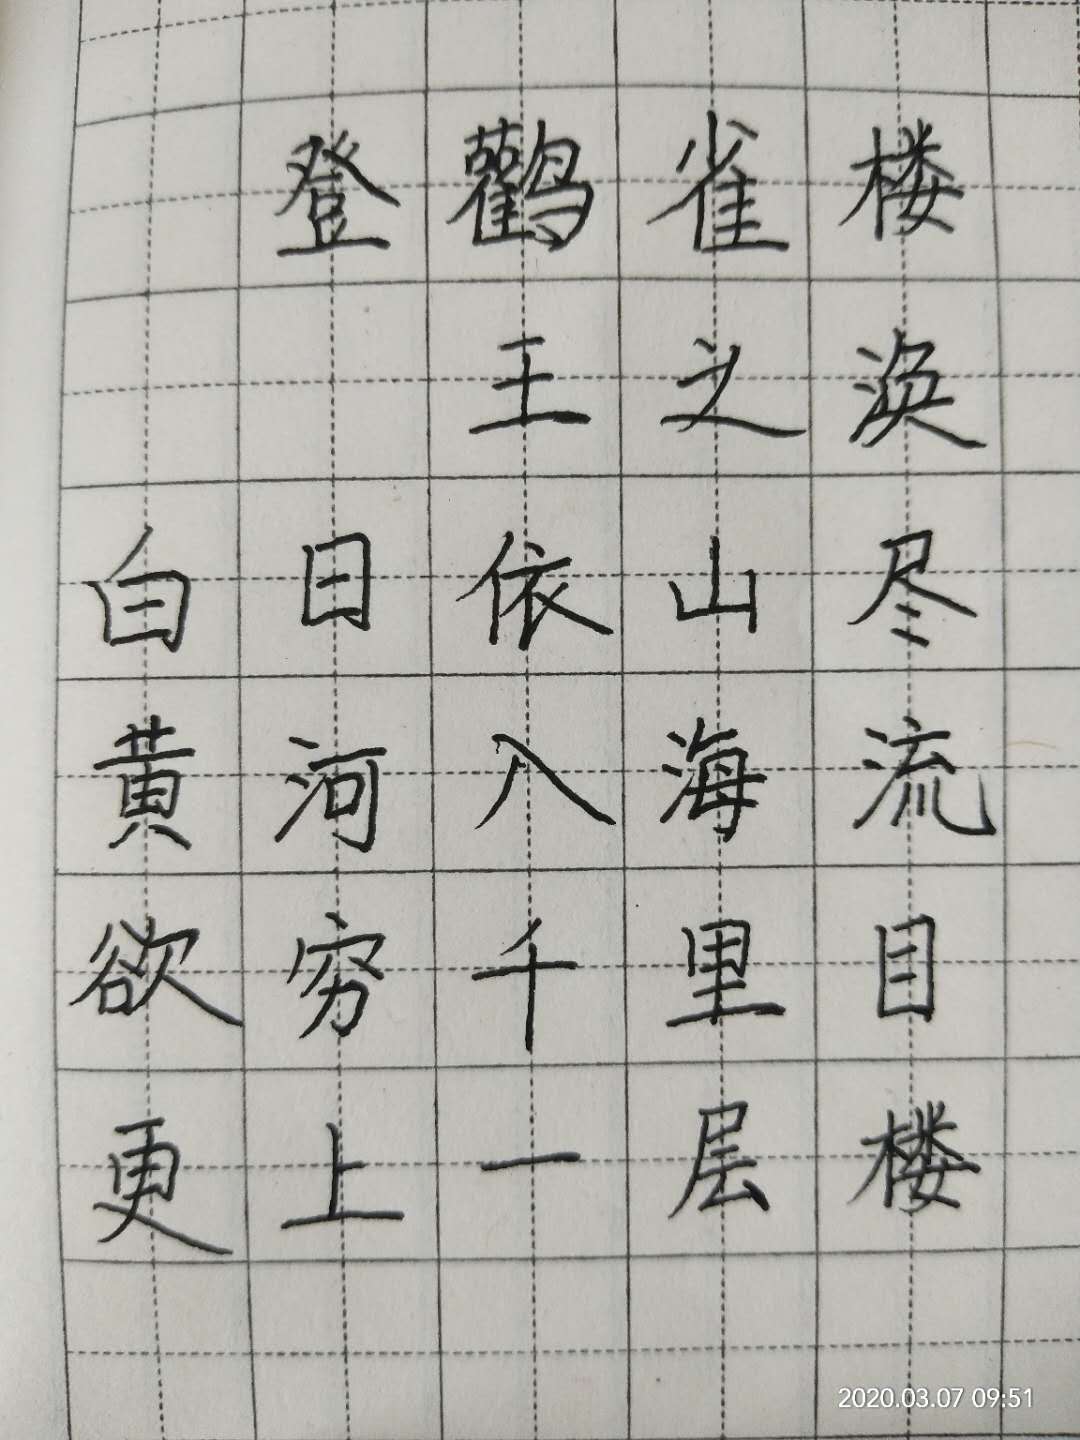 登鹳雀楼
王之涣
白日依山尽
黄河入海流
欲穷千里目
更上一层楼
2020.03.07 09:51